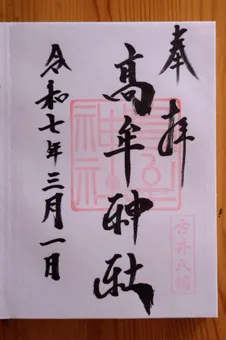 奉拝
高牟神社
令和七年三月一日
古井八幡